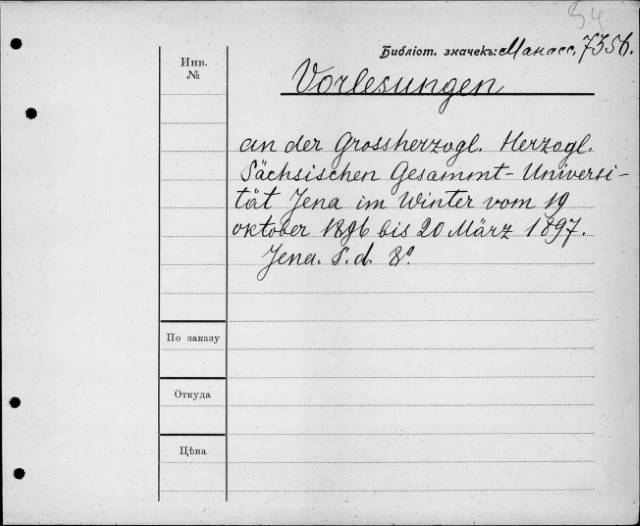 54
Библіот. значекъ: Манасс. 7356.
Инв.
№
Vorlesungen
an der Grossherzogl. Herzogl.
Sächsischen Gesammt-Universi-
tät Jena im Winter vom 19
oktober 1896 bis 20 März 1897.
Jena. S. d. 8º.
По заказу
Откуда
Цѣна